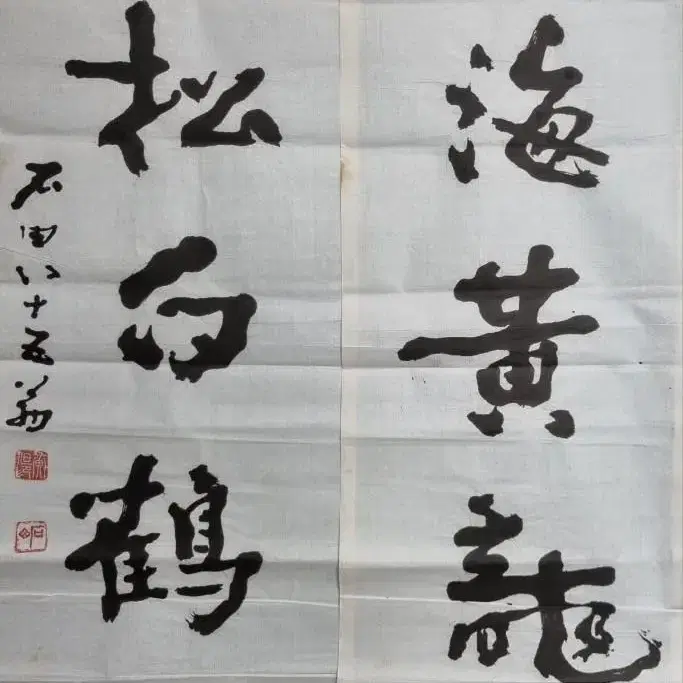 海黃龍
松白鶴
石田八十五翁